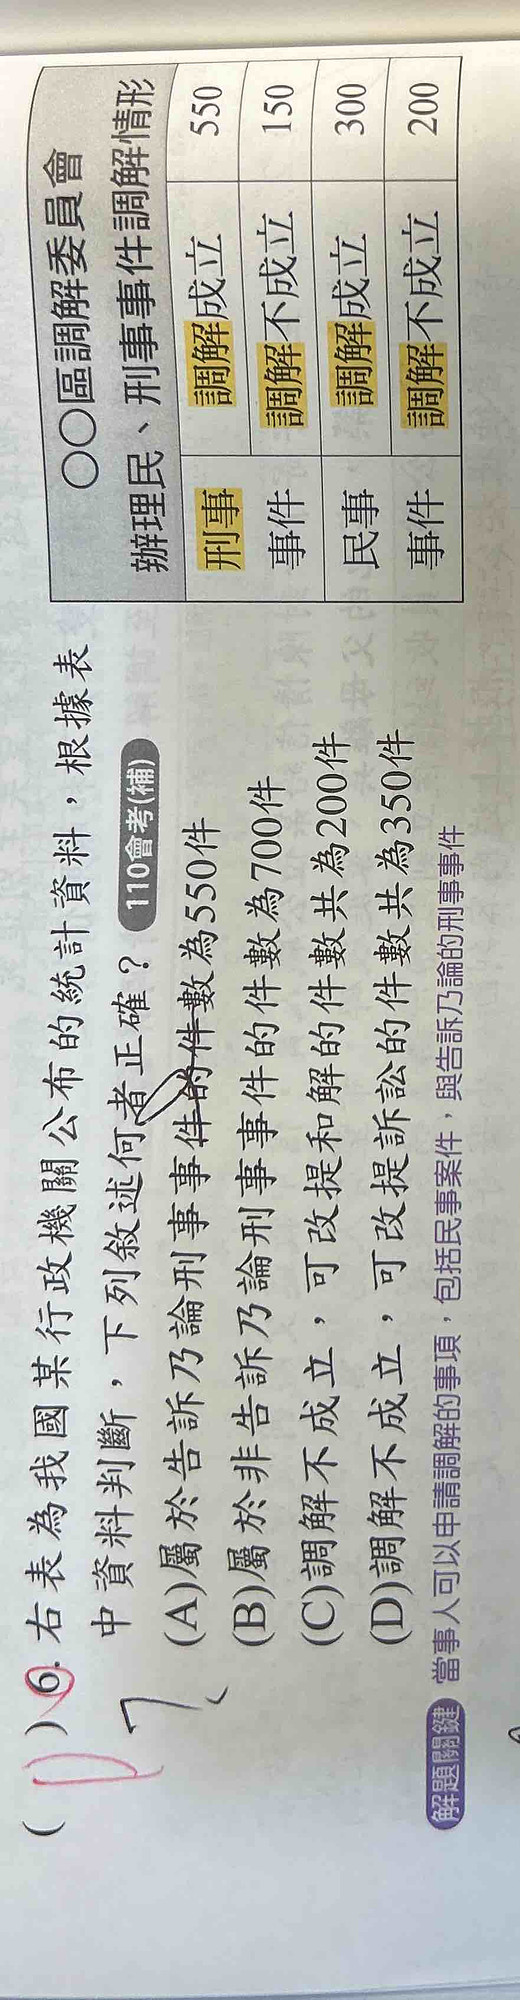 ( D ) 6. 右表為我國某行政機關公布的統計資料，根據表
中資料判斷，下列敘述何者正確？ 110會考(補)
(A)屬於告訴乃論刑事事件的件數為550件
(B)屬於非告訴乃論刑事事件的件數為700件
(C)調解不成立，可改提和解的件數共為200件
(D)調解不成立，可改提訴訟的件數共為350件
解題關鍵 當事人可以申請調解的事項，包括民事案件，與告訴乃論的刑事事件
〇〇區調解委員會
辦理民、刑事事件調解情形
刑事 調解成立 550
事件 調解不成立 150
民事 調解成立 300
事件 調解不成立 200